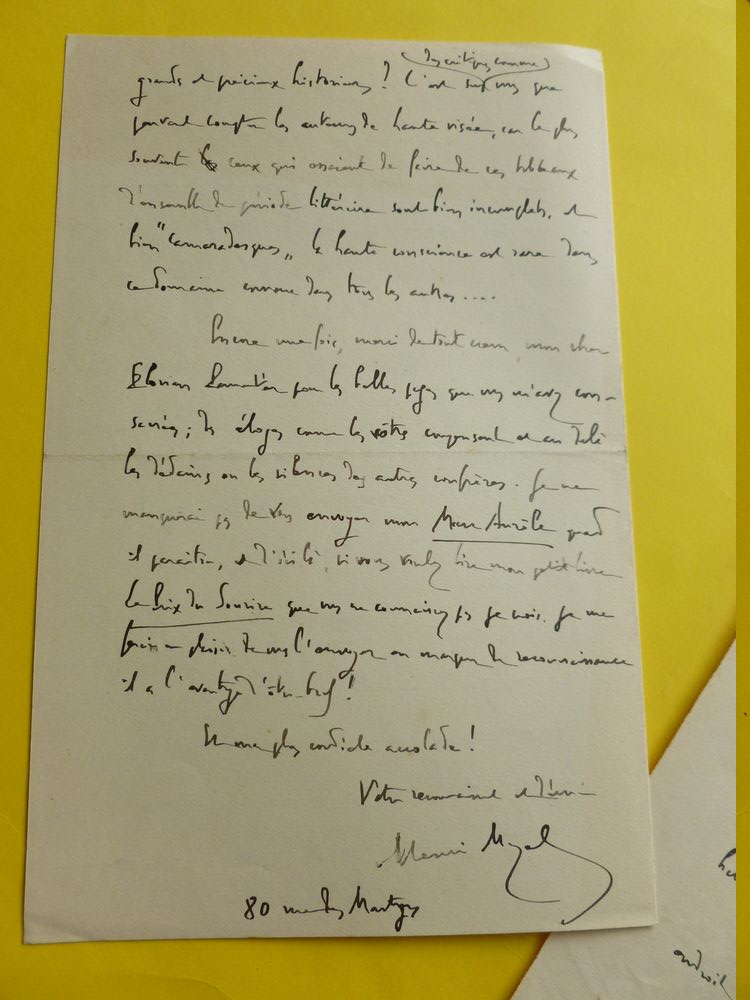 (des critiques comme)
grands et précieux historiens ? C'est sur vous que
peuvent compter les auteurs de haute visée, car le plus
souvent ceux qui essaient de faire de ces tableaux
d'ensemble de période littéraire sont bien incomplets, et
bien "camaradesques", la haute conscience est rare dans
ce domaine comme dans tous les autres....
Encore une fois, merci de tout cœur, mon cher
Florian Parmentier pour les belles pages que vous m'avez con-
sacrées ; des éloges comme les vôtres compensent et au delà
les dédains ou les silences des autres confrères. Je ne
manquerai pas de vous envoyer mon Marc Aurèle quand
il paraîtra, et d'ici là, si vous voulez lire mon petit livre
Le Prix du Sourire que vous ne connaissez pas je crois. Je me
ferai un plaisir de vous l'envoyer en marque de reconnaissance
il a l'avantage d'être bref !
Et ma plus cordiale accolade !
Votre reconnaissant et dévoué
Henri
80 rue des Martyrs